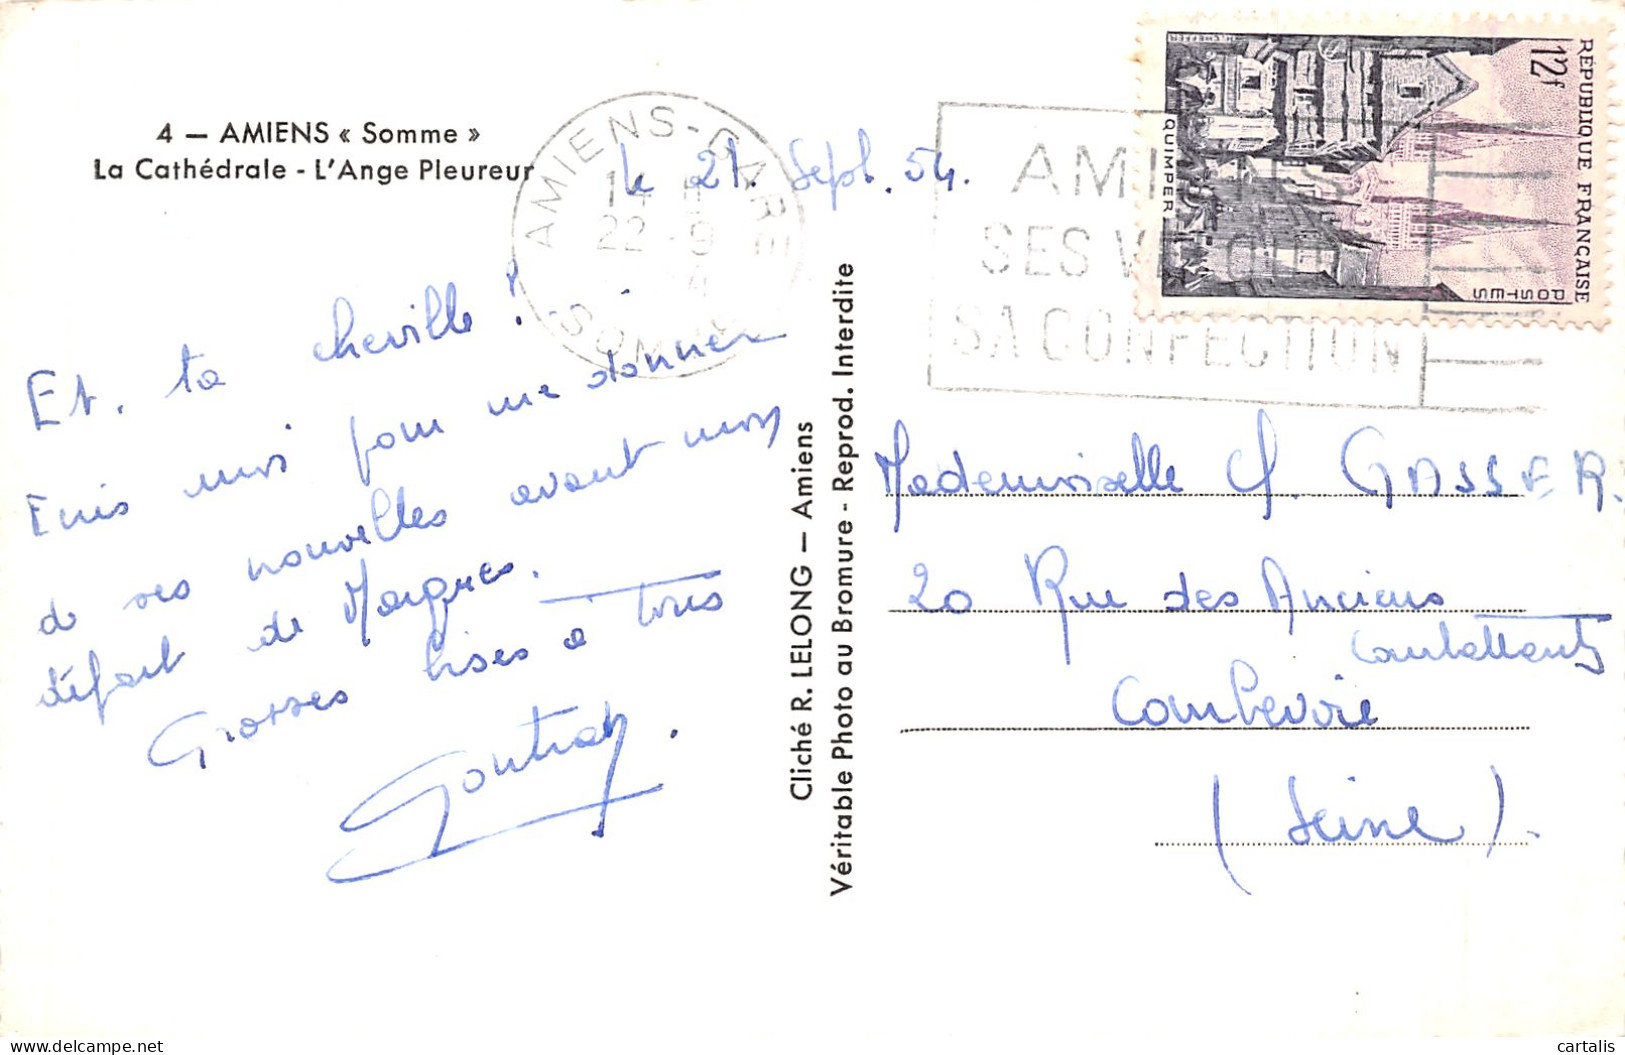 4 — AMIENS « Somme »
La Cathédrale - L'Ange Pleureur
le 21. Sept. 54.
AMIENS-GARE
14
22 -9
4
SOMME
AMIENS
SES VELOURS
SA CONFECTION
RÉPUBLIQUE FRANÇAISE
12f
POSTES
QUIMPER
Et. ta cheville !
Ecris moi pour me donner
de ses nouvelles avant mon
départ de
Grosses bises à tous
Gontran.
Cliché R. LELONG — Amiens
Véritable Photo au Bromure - Reprod. Interdite
Mademoiselle GASSER.
20 Rue des Anciens
Combattants
Courbevoie
(Seine).
cartalis